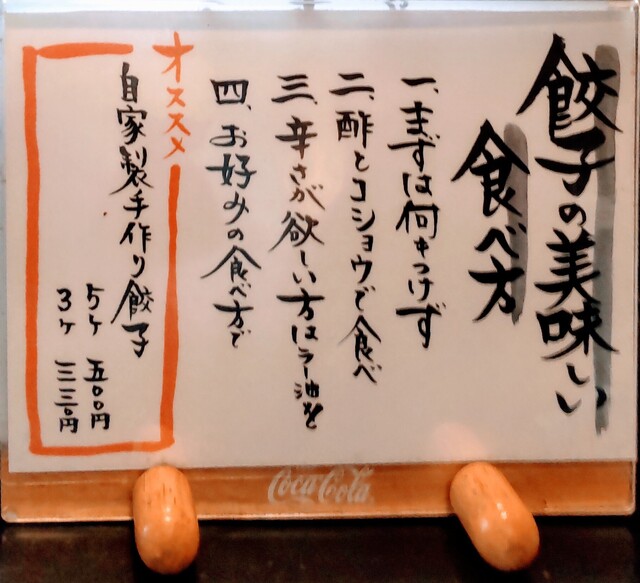 餃子の美味しい
食べ方
一、まずは何もつけず
二、酢とコショウで食べ
三、辛さが欲しい方はラー油を
四、お好みの食べ方で
オススメ
自家製手作り餃子
5ヶ 五〇〇円
3ヶ 三三〇円
Coca-Cola